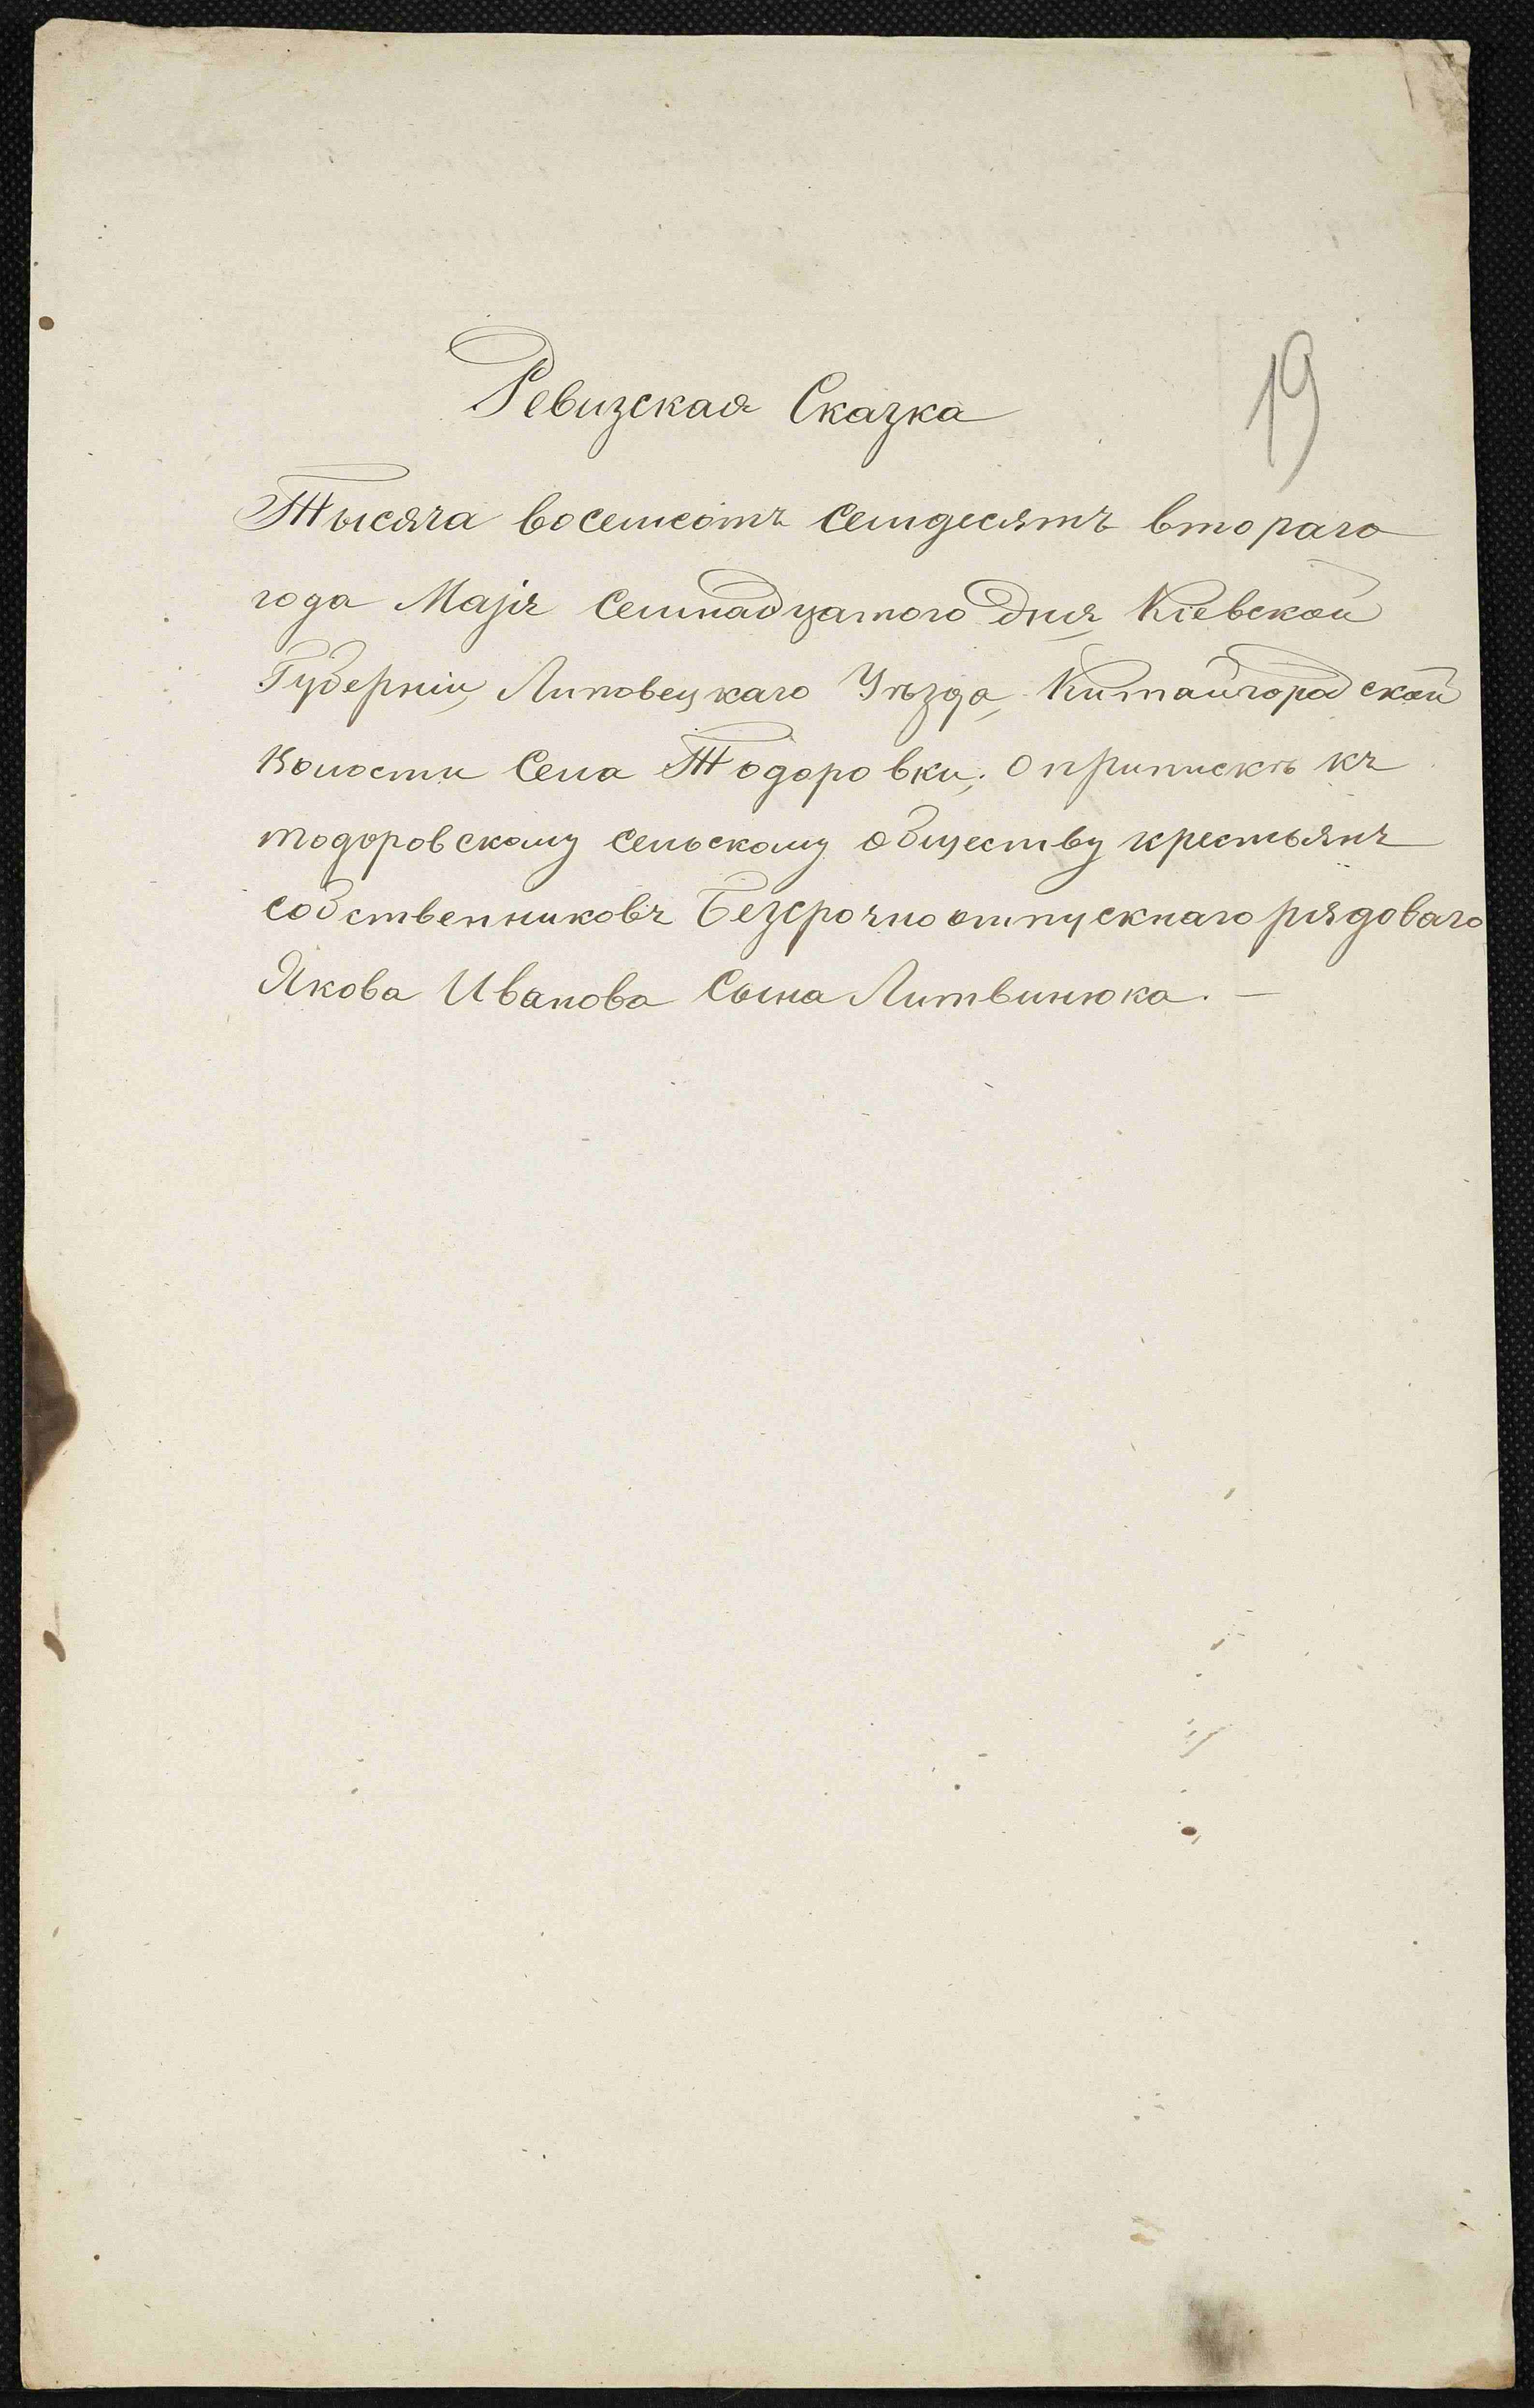 Ревизская Сказка
19
Тысяча восемсотъ семдесятъ втораго
года Маія семнадцатого дня, Кіевской
Губерніи, Липовецкаго Уѣзда, Китайгородской
Волости Села Тодоровки; о припискѣ къ
тодоровскому сельскому обществу крестьянъ
собственниковъ Безсрочноотпускнаго рядоваго
Якова Иванова Сына Литвинюка. —